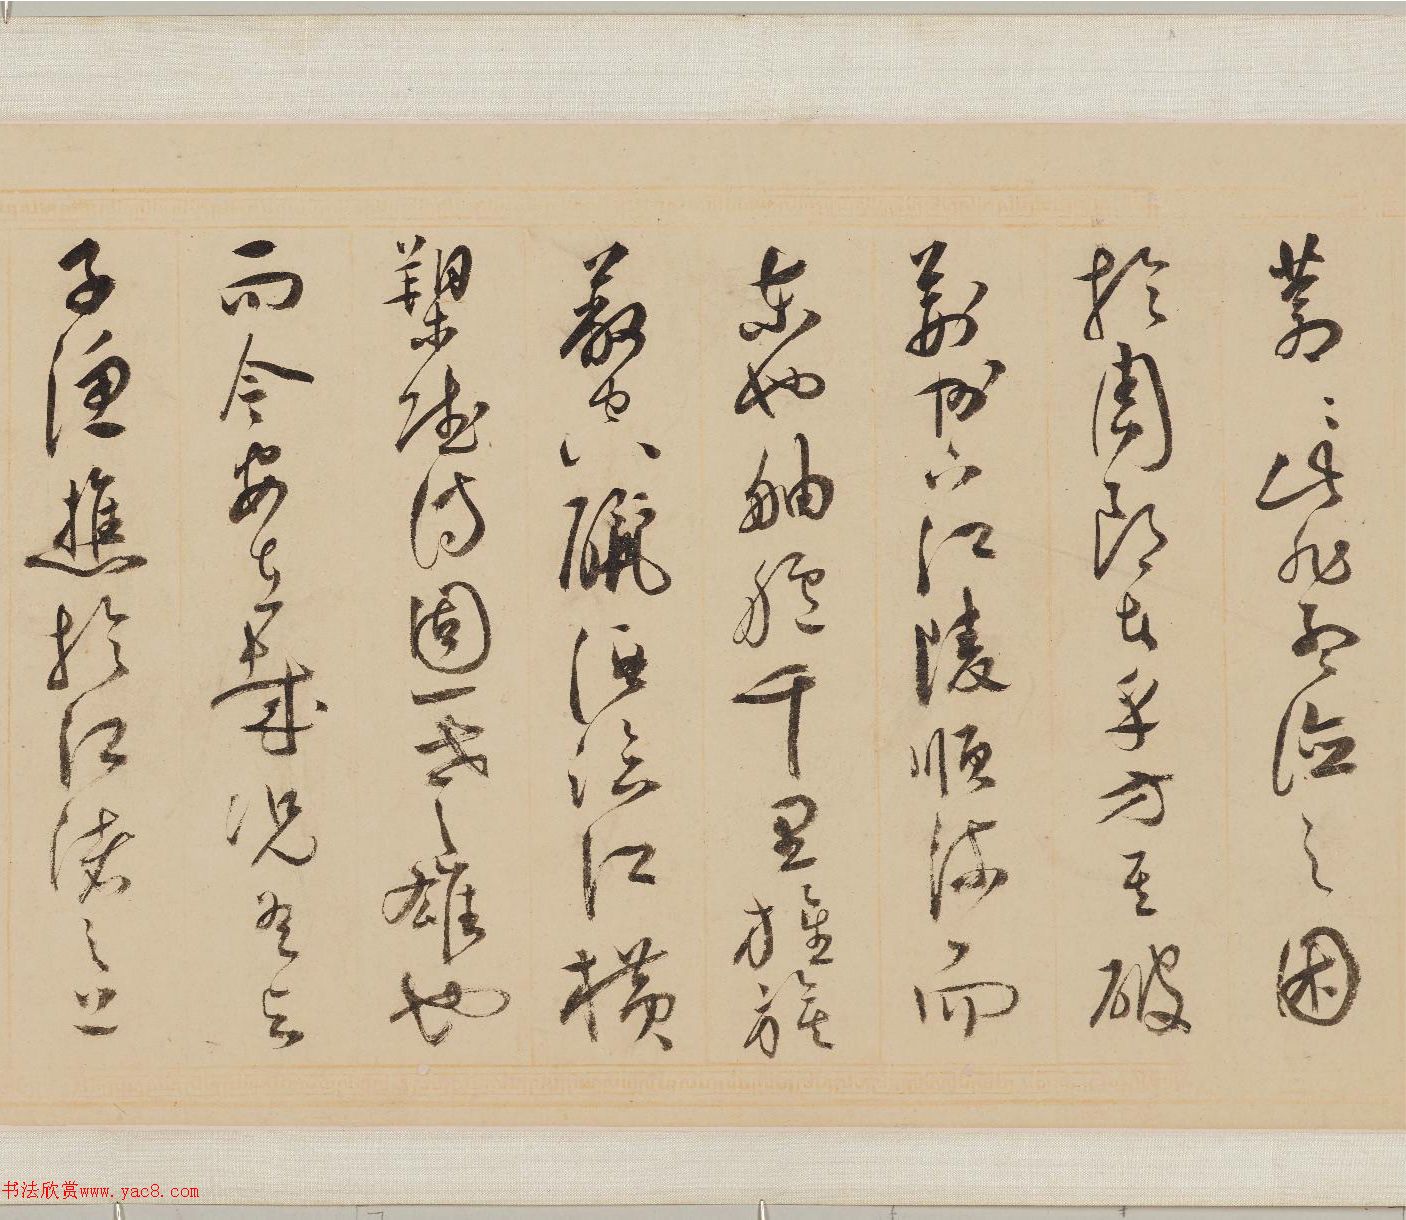 蒼〻此非孟德之困
於周郎者乎方其破
荊州下江陵順流而
東也舳艫千里旌旗
蔽空釃酒臨江橫
槊賦詩固一世之雄也
而今安在哉況吾與
子漁樵於江渚之上
书法欣赏www.yac8.com